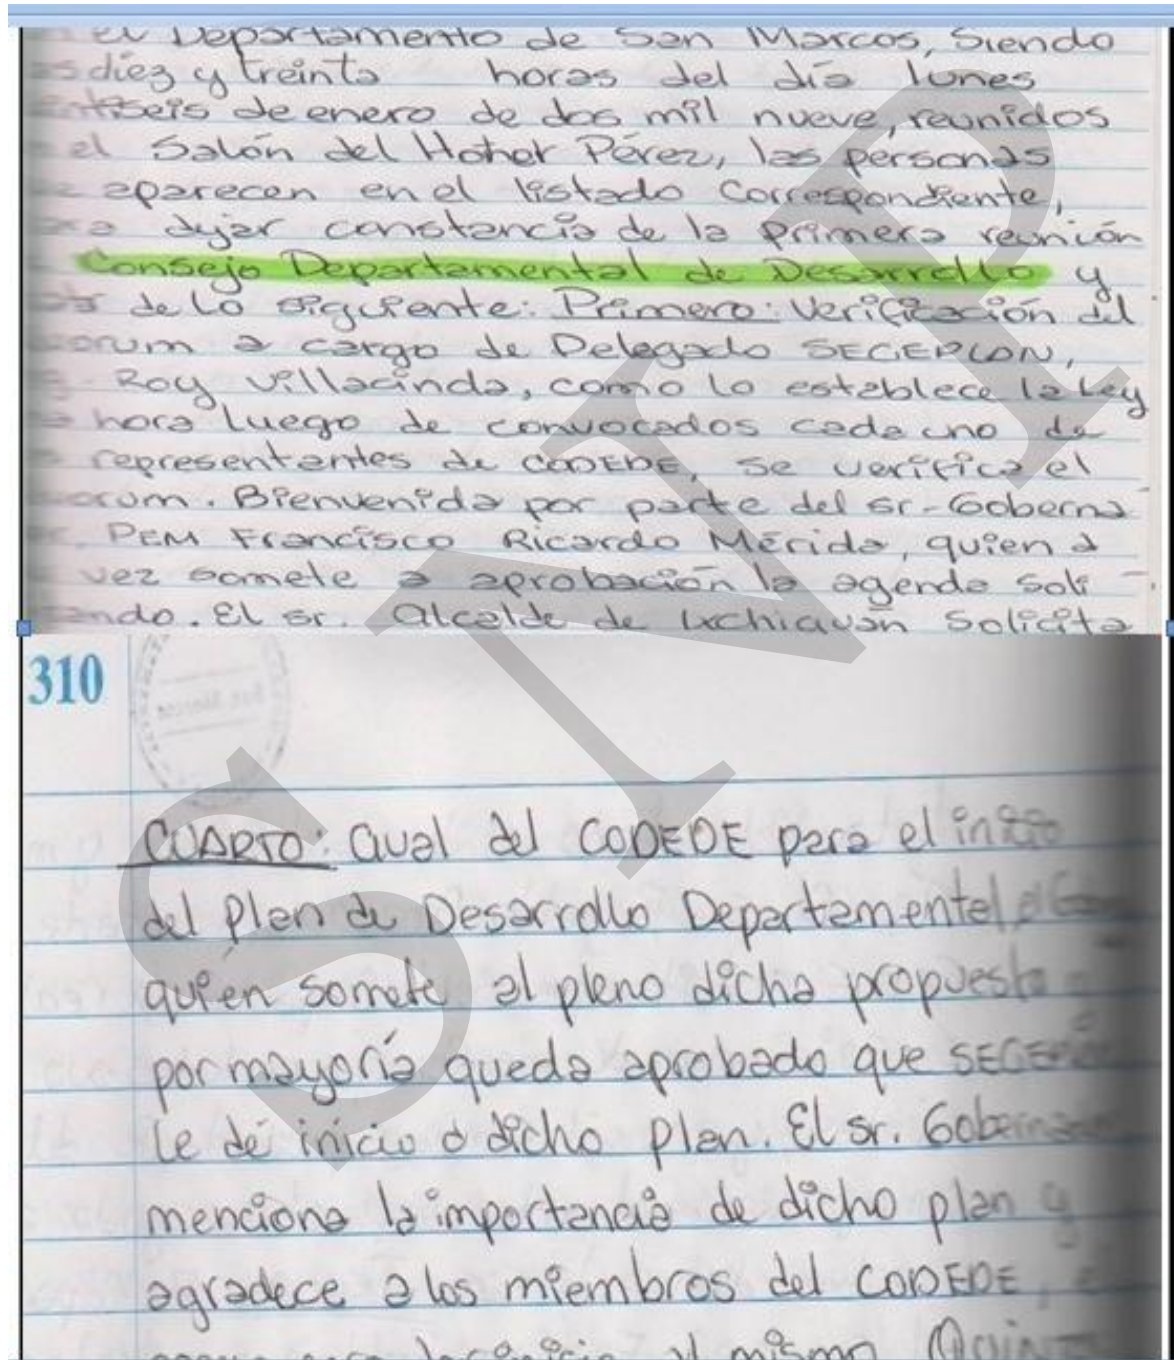 el Departamento de San Marcos, Siendo
diez y treinta horas del día lunes
seis de enero de dos mil nueve, reunidos
el Salón del Hotel Pérez, las personas
aparecen en el listado Correspondiente,
dejar constancia de la primera reunión
Consejo Departamental de Desarrollo y
de lo siguiente: Primero: Verificación del
orum a cargo de Delegado SEGEPLAN,
Roy Villacinda, como lo establece la Ley
hora luego de convocados cada uno de
representantes de CODEDE, se verifica el
orum. Bienvenida por parte del sr. Goberna
PEM Francisco Ricardo Mérida, quien a
vez somete a aprobación la agenda soli
ando. El sr. Alcalde de Ixchiguán Solicita
310
San Marcos
CUARTO: Aval del CODEDE para el inicio
del Plan de Desarrollo Departamental,
quien somete al pleno dicha propuesta
por mayoría queda aprobado que SEGEPLAN
le dé inicio a dicho plan. El sr. Gobernador
menciona la importancia de dicho plan y
agradece a los miembros del CODEDE,
mismo
SNIP